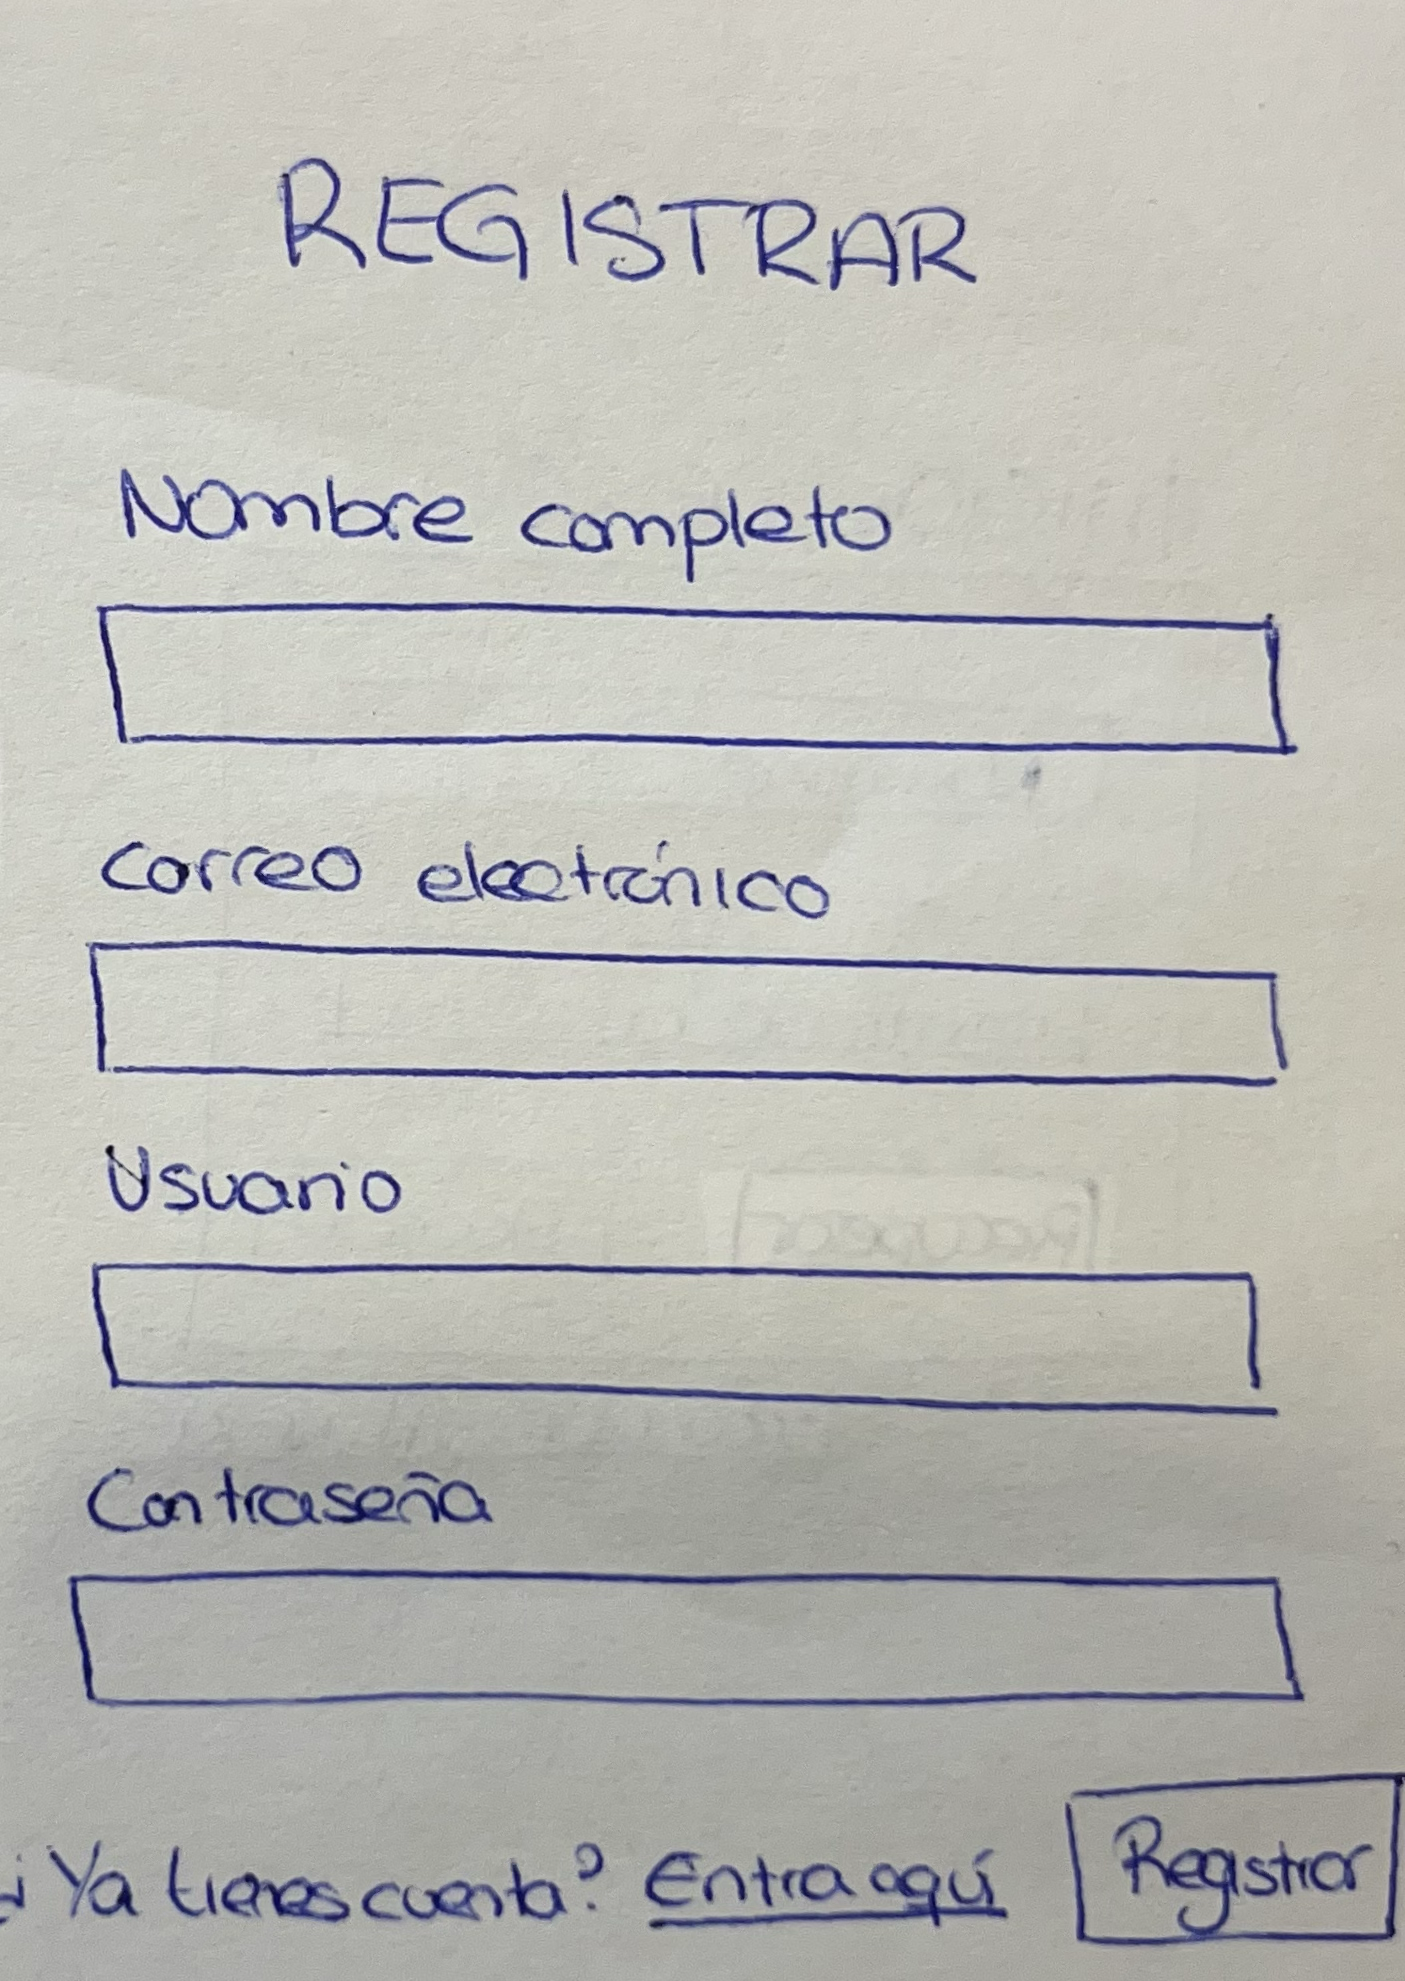 REGISTRAR
Nombre completo
Correo electrónico
Usuario
Contraseña
¿Ya tienes cuenta? Entra aquí Registrar